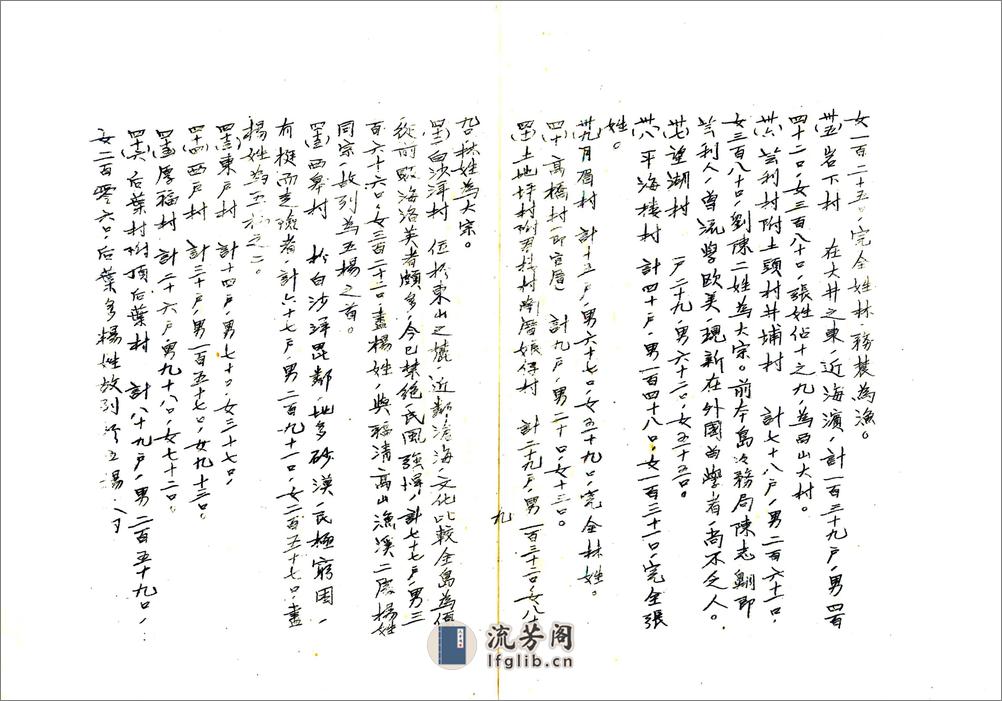 女一百二十五口，完全姓林，務農為漁。
卅五岩下村　在大井之東，近海濱，計一百三十九戶，男四百
四十二口，女三百八十口，張姓佔十之九，為西山大村。
卅六 芸利村附土頭村井埔村　計七十八戶，男二百六十一口，
女三百八十口，劉陳二姓為大宗。前本島 務局陳志 即
芸利人，曾流學歐美，現新在外國留學者，尚不乏人。
卅七望湖村　戶二十九，男六十二口，女五十三口。
卅八平海樓村　計四十戶，男一百四十八口，女一百三十一口，完全張
姓。
卅九月眉村　計十三戶，男六十七口，女五十九口，完全林姓。
四十 高橋村（即官厝）計九戶，男二十口，女十三口。
土地坪村附 村南厝娘仔村　計二十九戶，男一百三十二口，女八十
九
九口，林姓為大宗。
白沙洋村　位於東山之麓，近鄰滄海，文化比較全島為低，
從前歐海洛美者頗多，今已禁絕，民風強悍，計七十七戶，男三
百六十六口，女三百二十二口，盡楊姓，與福清高山漁溪二處楊姓
同宗，故列為五楊之首。
西皋村　於白沙洋毘鄰，地多砂漠，民極窮困，
有挺而走險者，計六十七戶，男二百九十一口，女二百五十七口，盡
楊姓為五 之二。
東戶村　計十四戶，男七十口，女三十七口，
西戶村　計三十戶，男一百五十七口，女九十三口。
厚福村　計二十六戶，男九十八口，女七十二口。
四十六 后葉村附頂后葉村　計八十九戶，男二百五十九口，
女二百零六口，后葉多楊姓故列 五楊
流芳阁
lfglib.cn